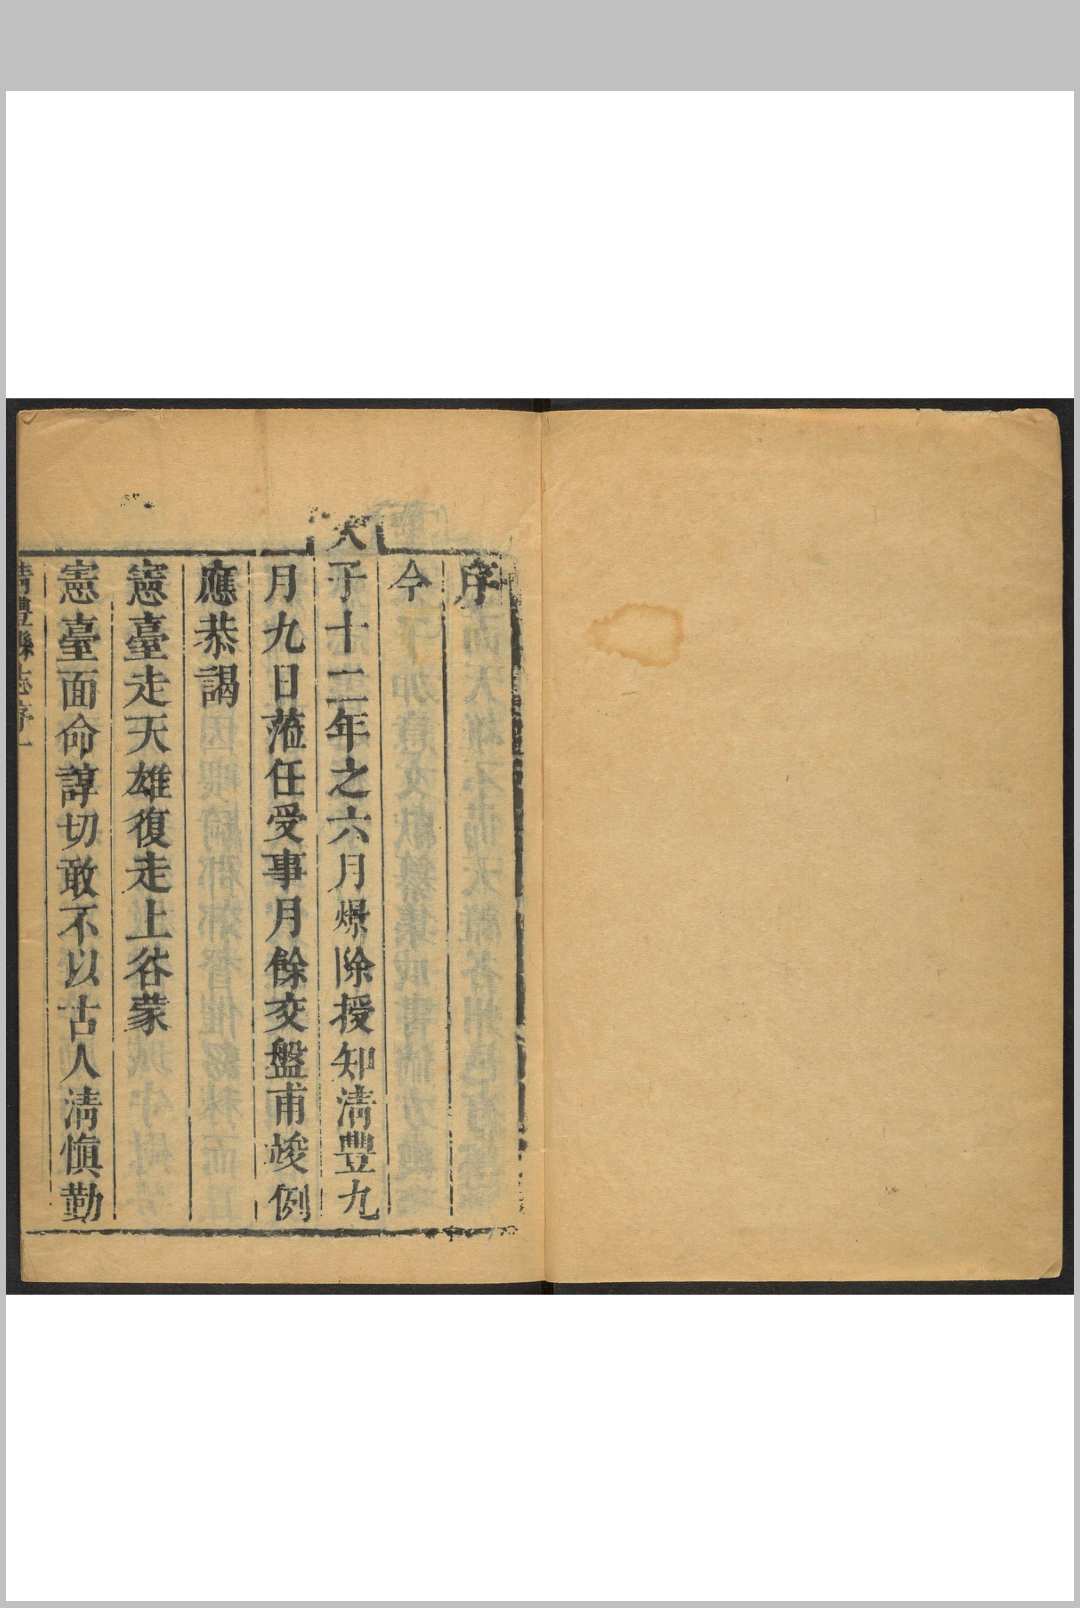 序
今
天子十二年之六月爆除授知清豐九
月九日蒞任受事月餘交盤甫竣例
應恭謁
憲臺走天雄復走上谷蒙
憲臺面命諄切敢不以古人清慎勤
清豐縣志序一